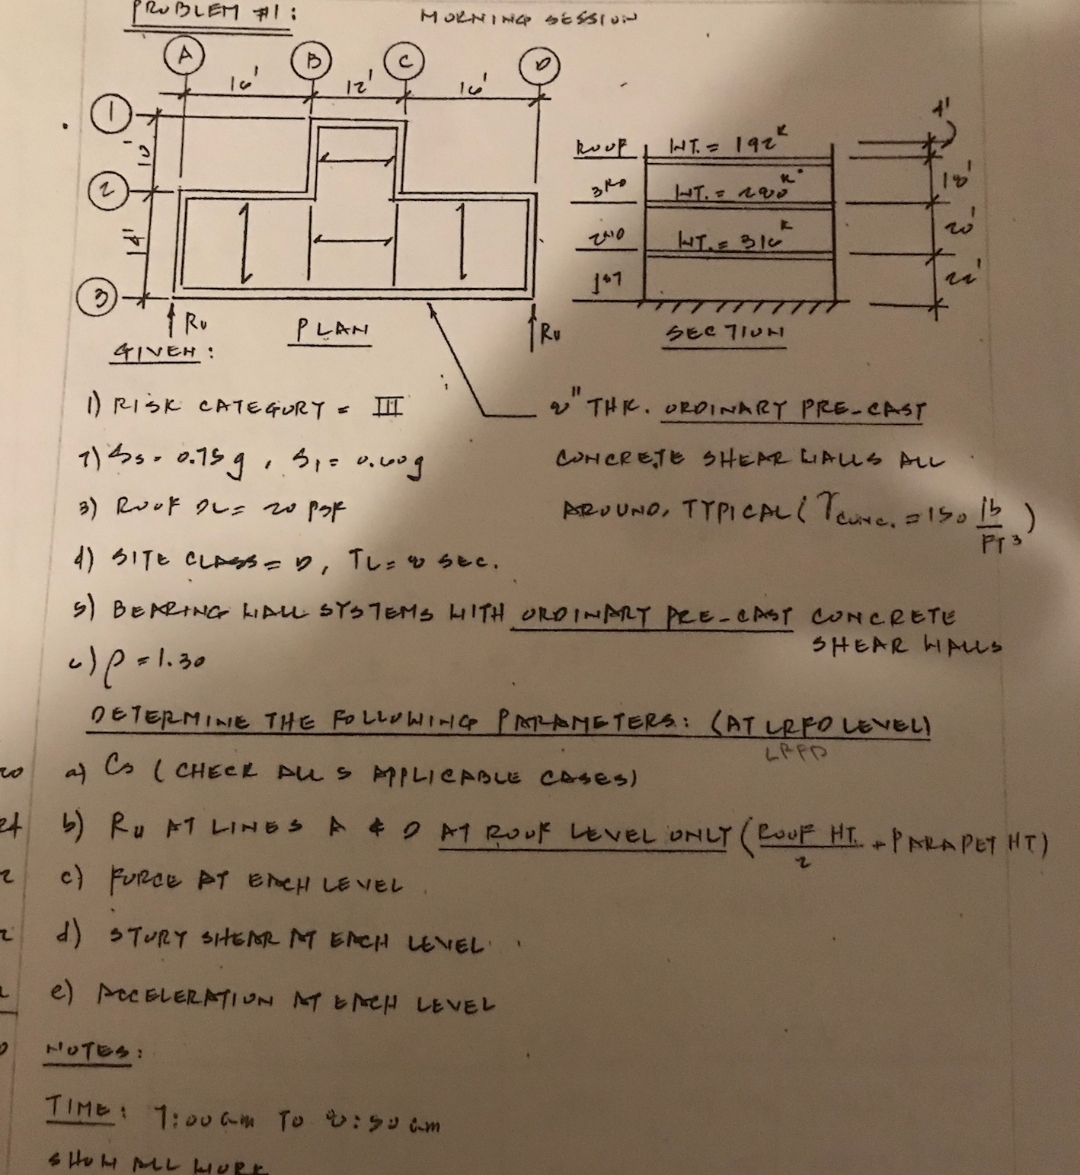 PROBLEM #1:
MORNING SESSION
A B C D
16' 12' 16'
1
10'
2
14'
3
Ru Ru
PLAN
ROOF WT. = 192K
3RD WT. = 280K
2ND WT. = 316K
1ST
4'
18'
20'
22'
SECTION
GIVEN:
1) RISK CATEGORY = III
2) Ss = 0.75g, S1 = 0.60g
3) ROOF DL = 20 PSF
4) SITE CLASS = D, TL = 8 SEC.
8" THK. ORDINARY PRE-CAST
CONCRETE SHEAR WALLS ALL
AROUND, TYPICAL (γCONC. = 150 lb/FT3)
5) BEARING WALL SYSTEMS WITH ORDINARY PRE-CAST CONCRETE
SHEAR WALLS
6) ρ = 1.30
DETERMINE THE FOLLOWING PARAMETERS: (AT LRFD LEVEL)
LRFD
20 a) Cs (CHECK ALL 5 APPLICABLE CASES)
24 b) Ru AT LINES A & D AT ROOF LEVEL ONLY (ROOF HT./2 + PARAPET HT)
2 c) FORCE AT EACH LEVEL
2 d) STORY SHEAR AT EACH LEVEL
e) ACCELERATION AT EACH LEVEL
NOTES:
TIME: 7:00 am TO 8:50 am
SHOW ALL WORK